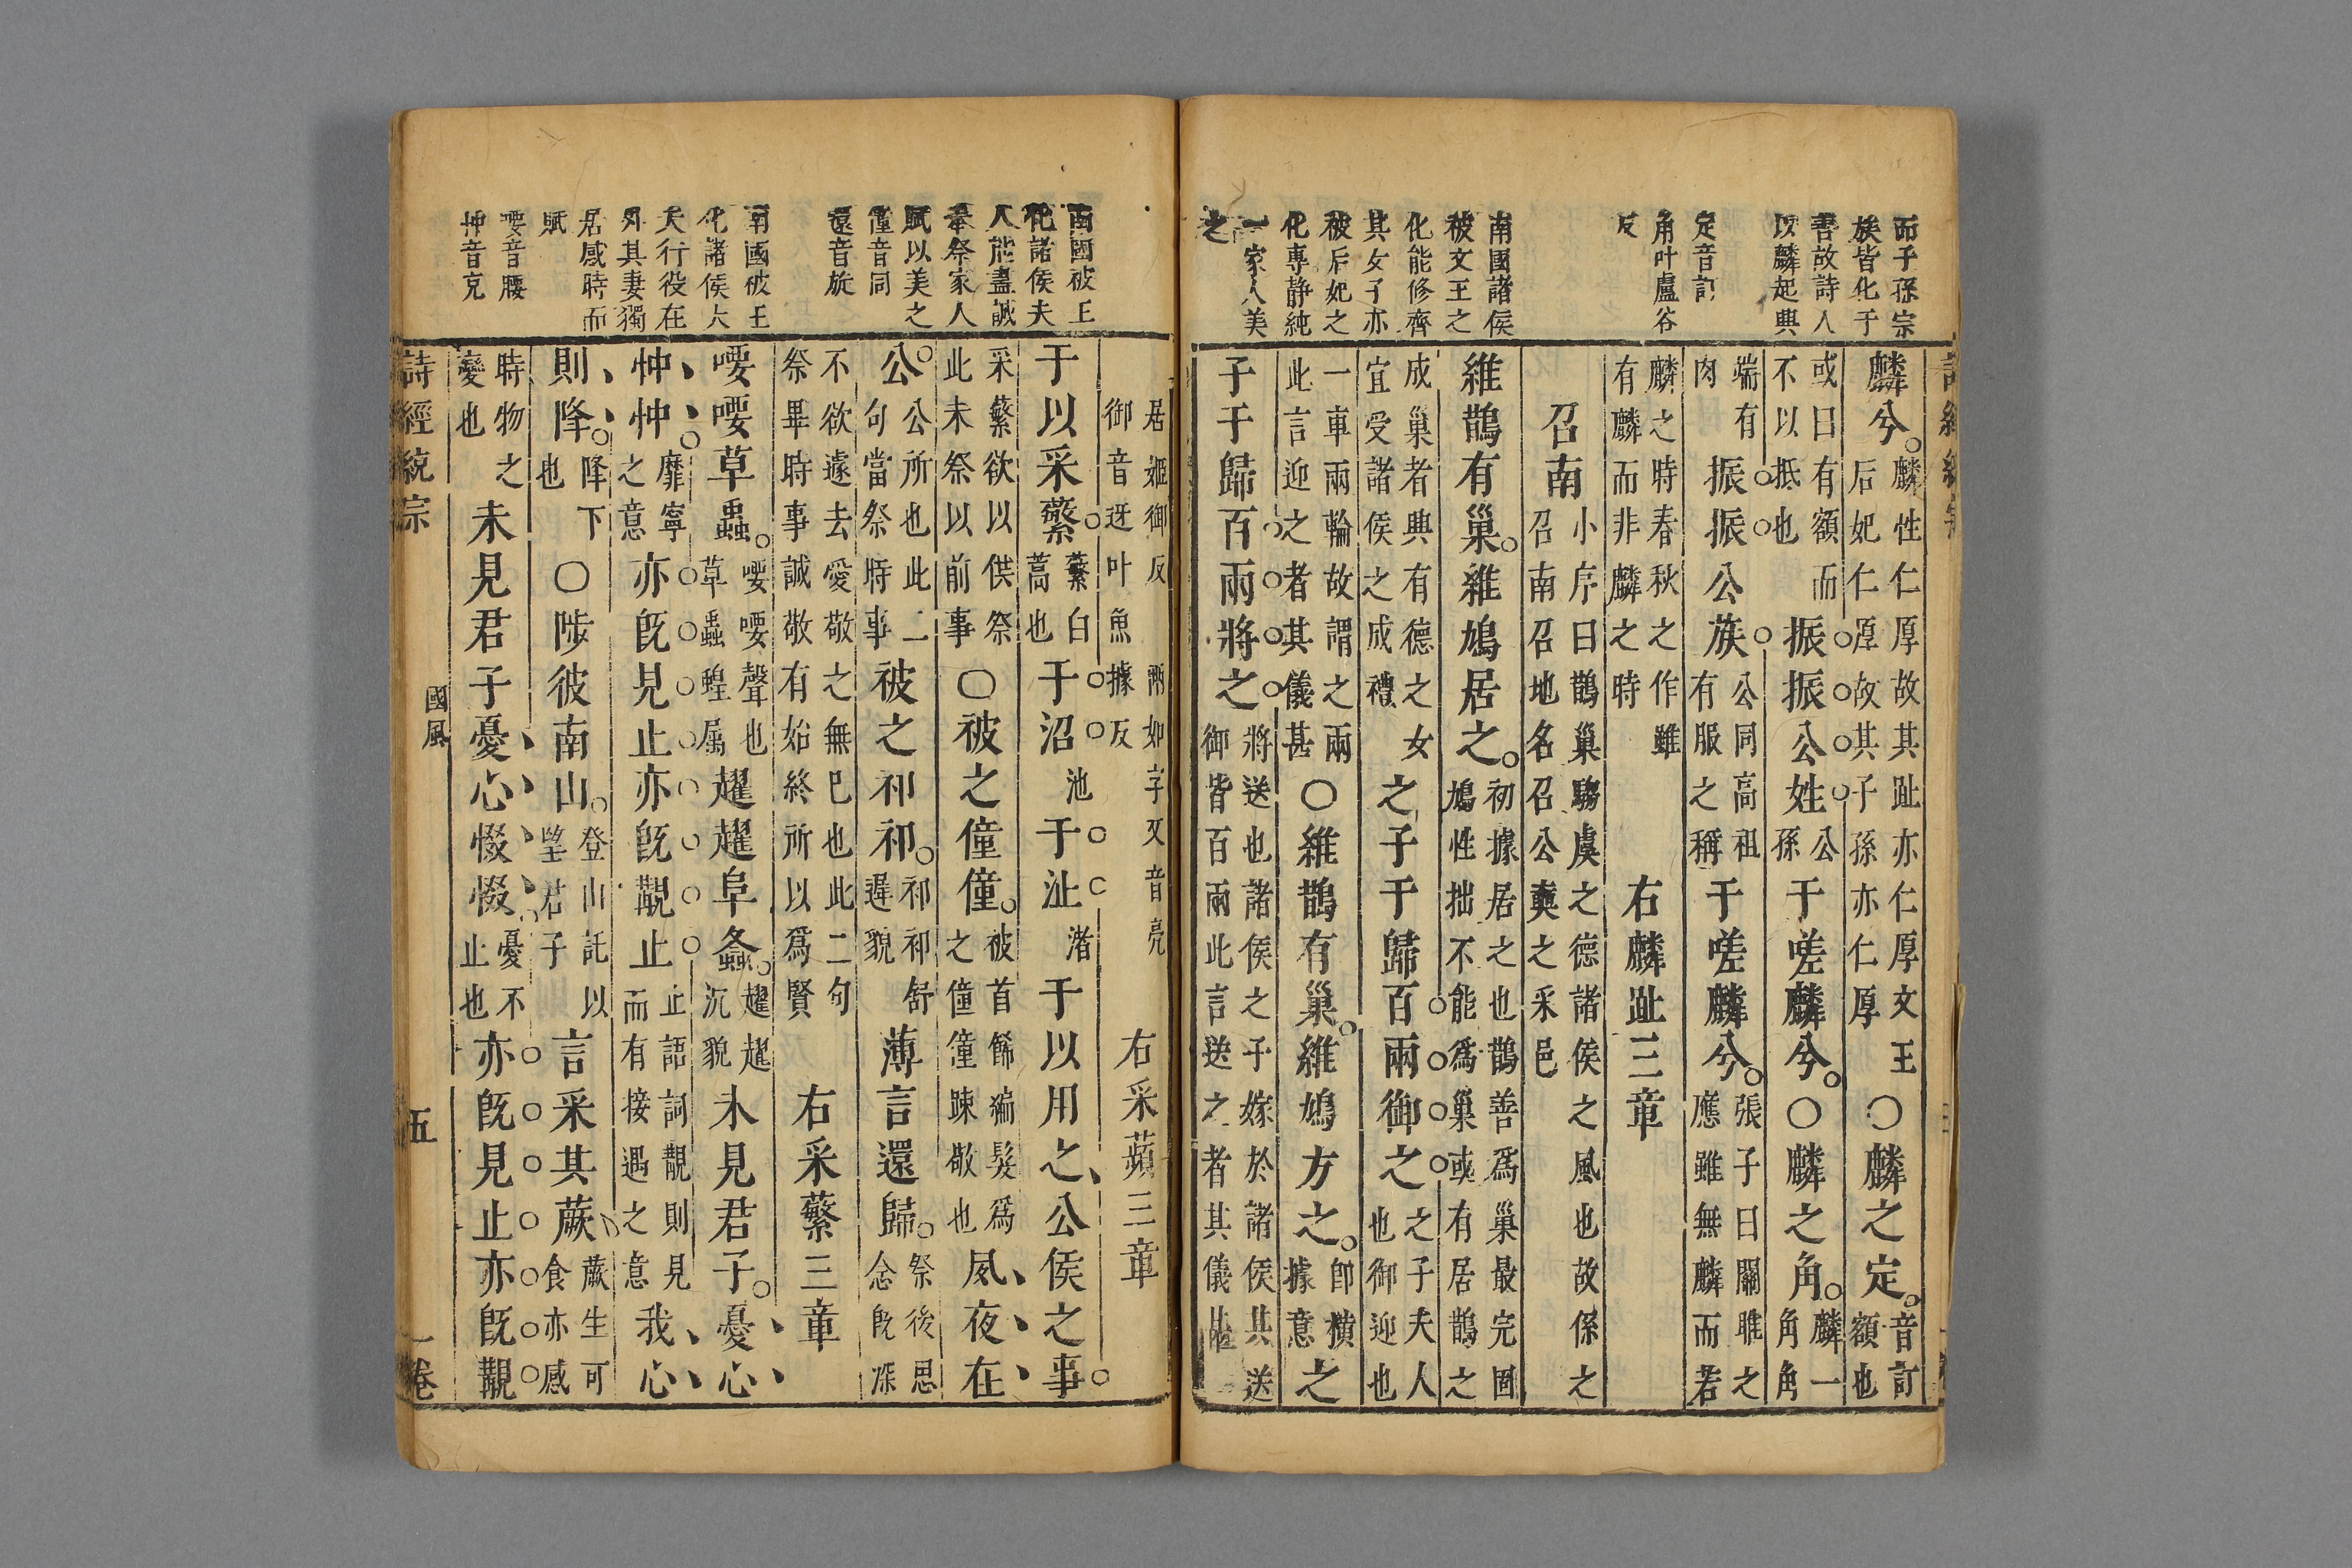 而子孫宗
族皆化于
善故詩人
以麟起興
定音訂
角叶盧谷
反
南國諸侯
被文王之
化能修齊
其女子亦
被后妃之
化專静純
一家人美
之
麟兮麟性仁厚故其趾亦仁厚文王后妃仁厚故其子孫亦仁厚〇麟之定音訂額也
或曰有額而不以抵也振振公姓公孫于嗟麟兮〇麟之角麟一角角
端有肉振振公族公同高祖有服之稱于嗟麟兮張子曰關雎之應雖無麟而若
麟之時春秋之作雖有麟而非麟之時右麟趾三章
召南小序曰鵲巢騶虞之德諸侯之風也故係之召南召地名召公奭之采邑
維鵲有巢維鳩居之初據居之也鵲善爲巢最完固鳩性拙不能爲巢或有居鵲之
成巢者興有德之女宜受諸侯之成禮之子于歸百兩御之之子夫人也御迎也
一車兩輪故謂之兩此言迎之者其儀甚〇維鵲有巢維鳩方之卽橫據意之
子于歸百兩將之將送也諸侯之子嫁於諸侯共送御皆百兩此言送之者其儀
南國被王
化諸侯夫
人能盡誠
奉祭家人
賦以美之
僮音同
還音旋
南國被王
化諸侯大
夫行役在
外其妻獨
居感時而
賦
喓音腰
忡音充
居姬御反兩如字又音亮御音迓叶魚據反右采蘋三章
于以采蘩蘩白蒿也于沼池于沚渚于以用之公侯之事
采蘩欲以供祭此未祭以前事〇被之僮僮被首餙編髮爲之僮僮竦敬也夙夜在
公公所也此二句當祭時事被之祁祁祁祁舒遲貌薄言還歸祭後思念旣深
不欲遽去愛敬之無已也此二句祭畢時事誠敬有始終所以爲賢右采蘩三章
喓喓草蟲喓喓聲也草蟲蝗属趯趯阜螽趯趯沉貌未見君子憂心
忡忡靡寧之意亦旣見止亦旣覯止止語詞覯則見而有接遇之意我心
則降降下也〇陟彼南山登山託以望君子言采其蕨蕨生可食亦感
時物之變也未見君子憂心惙惙憂不止也亦旣見止亦旣覯
詩經統宗
國風
五
一卷